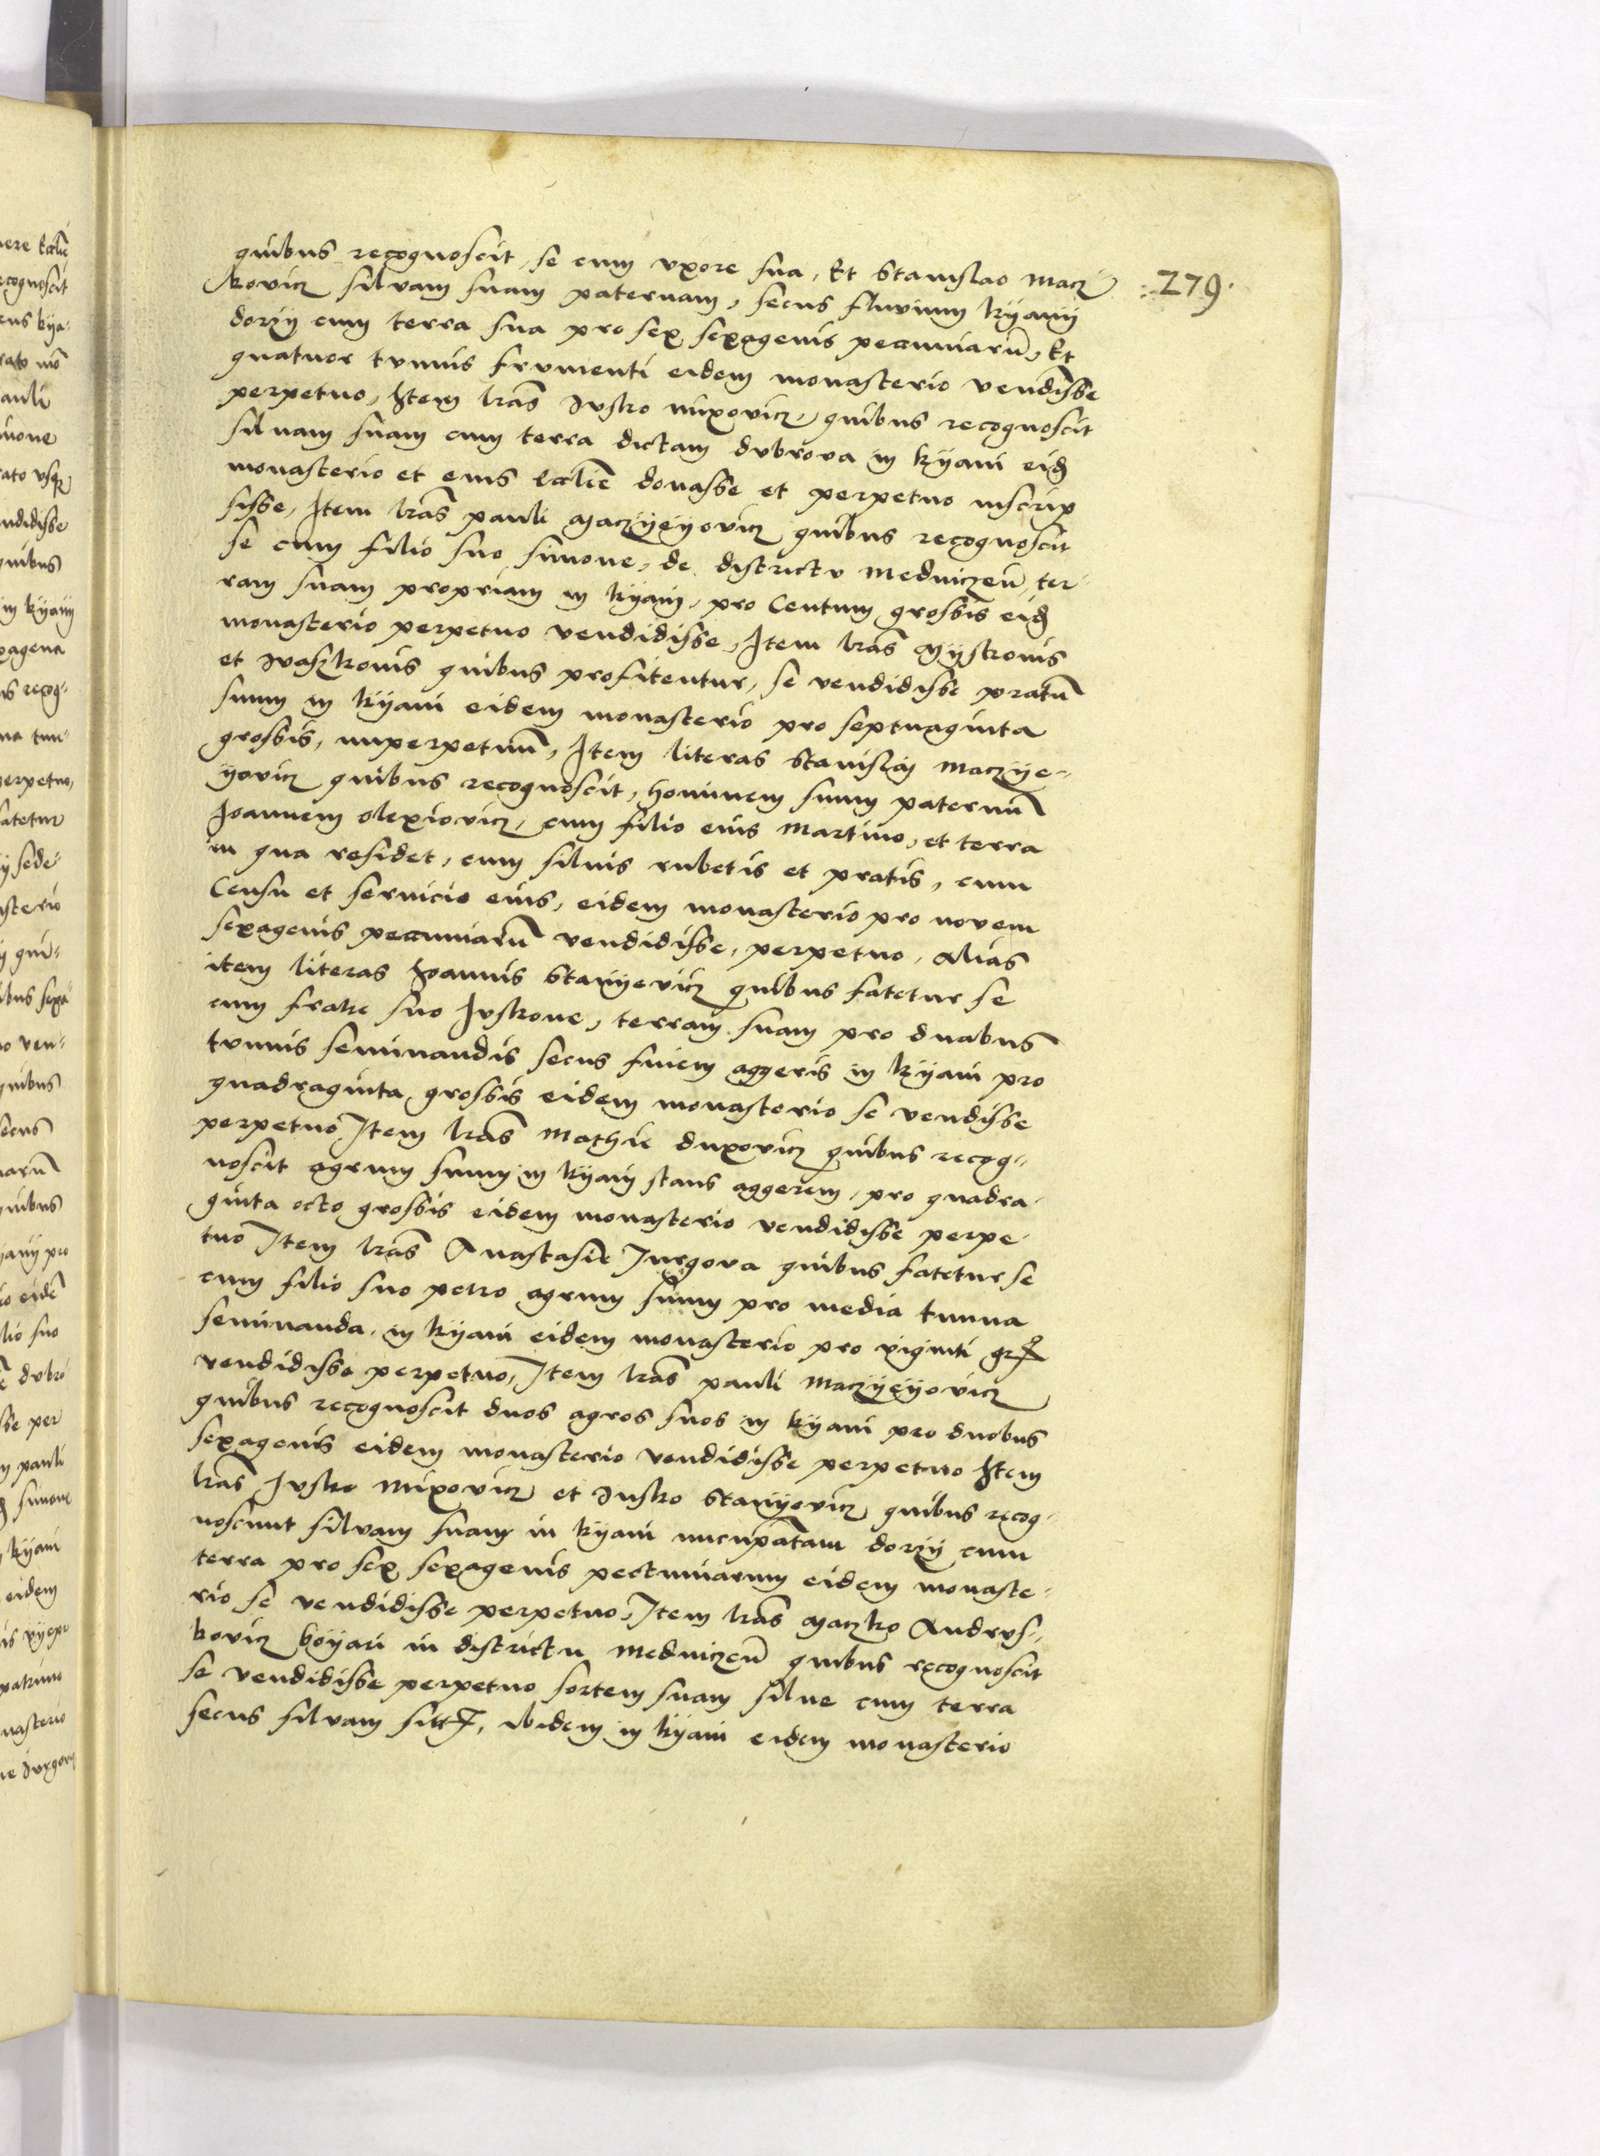 279.
quibus recognoscit, se cum uxore sua, Et Stanislao Macz
kovicz silvam suam paternam, secus fluvium kyany
dorzy cum terra sua pro sex sexagenis pecuniarū, Et
quatuor tunnis frumenti eidem monasterio vendisse
perpetuo, Item lrās Jusko Mixovicz, quibus recognoscit
silvam suam cum terra dictam dubrova in kyani eidē
monasterio et eius ecclie donasse et perpetuo inscrip
sisse, Item lrās pauli Maczyeyovicz quibus recognoscit
se cum filio suo Simone, de districtu Medniczeñ, ter-
ram suam propriam in kyani, pro Centum grossis eidē
monasterio perpetuo vendidisse, Item lrās Mystronis
et Ivaszkonis quibus profitentur, se vendidisse pratū
suum in kyani eidem monasterio pro septuaginta
grossis, inperpetuū, Item literas Stanislai Maczye-
yovicz quibus recognoscit, hominem suum paternū
Joannem olexiovicz, cum filio eius Martino, et terra
in qua residet, cum silvis rubetis et pratis, cum
Censu et servicio eius, eidem monasterio pro novem
sexagenis pecuniarū vendidisse, perpetuo, Alias
item literas Joannis Stanyevicz quibus fatetur se
cum fratre suo Juskone, terram suam pro duabus
tunnis seminandis secus finem aggeris in kyani pro
quadraginta grossis eidem monasterio se vendisse
perpetuo Item lrās Mathie duxovicz quibus recog-
noscit agrum suum in kyani stans aggerem, pro quadra-
ginta octo grossis eidem monasterio vendidisse perpe-
tuo Item lrās Anastasie Jurgova quibus fatetur se
cum filio suo petro agrum suum pro media tunna
seminanda, in kyani eidem monasterio pro viginti gr
vendidisse perpetuo, Item lrās pauli Maczyeyovicz
quibus recognoscit duos agros suos in kyani pro duobus
sexagenis eidem monasterio vendidisse perpetuo Item
lrās Jusko Mixovicz et Jusko Stanyevicz quibus recog-
noscunt silvam suam in kyani nuncupatam dorzy cum
terra pro sex sexagenis pectuniarum eidem monaste-
rio se vendidisse perpetuo, Item lrās Maczko Andrus-
kovicz boyari in districtu Mednizeñ quibus recognoscit
se vendidisse perpetuo sortem suam silve cum terra
secus silvam ibidem in kyani eidem monasterio